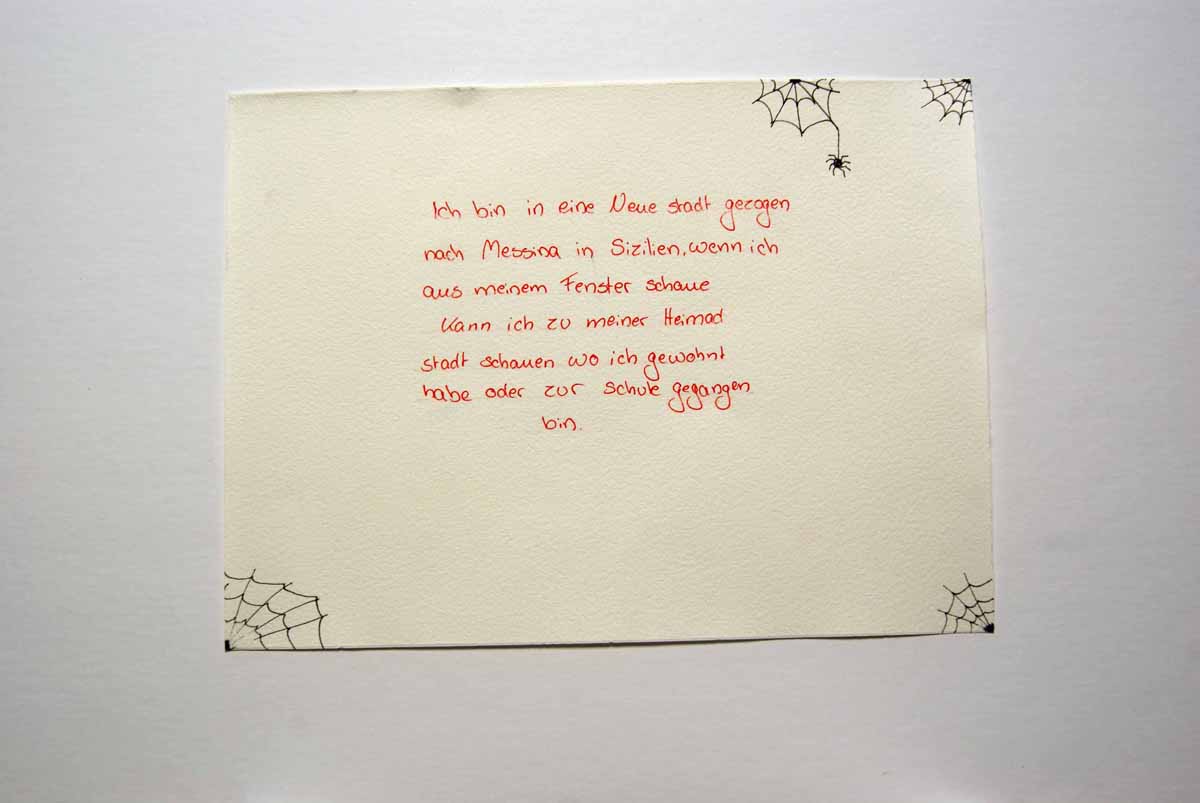 Ich bin in eine Neue stadt gezogen
nach Messina in Sizilien, wenn ich
aus meinem Fenster schaue
Kann ich zu meiner Heimad
stadt schauen wo ich gewohnt
habe oder zur Schule gegangen
bin.